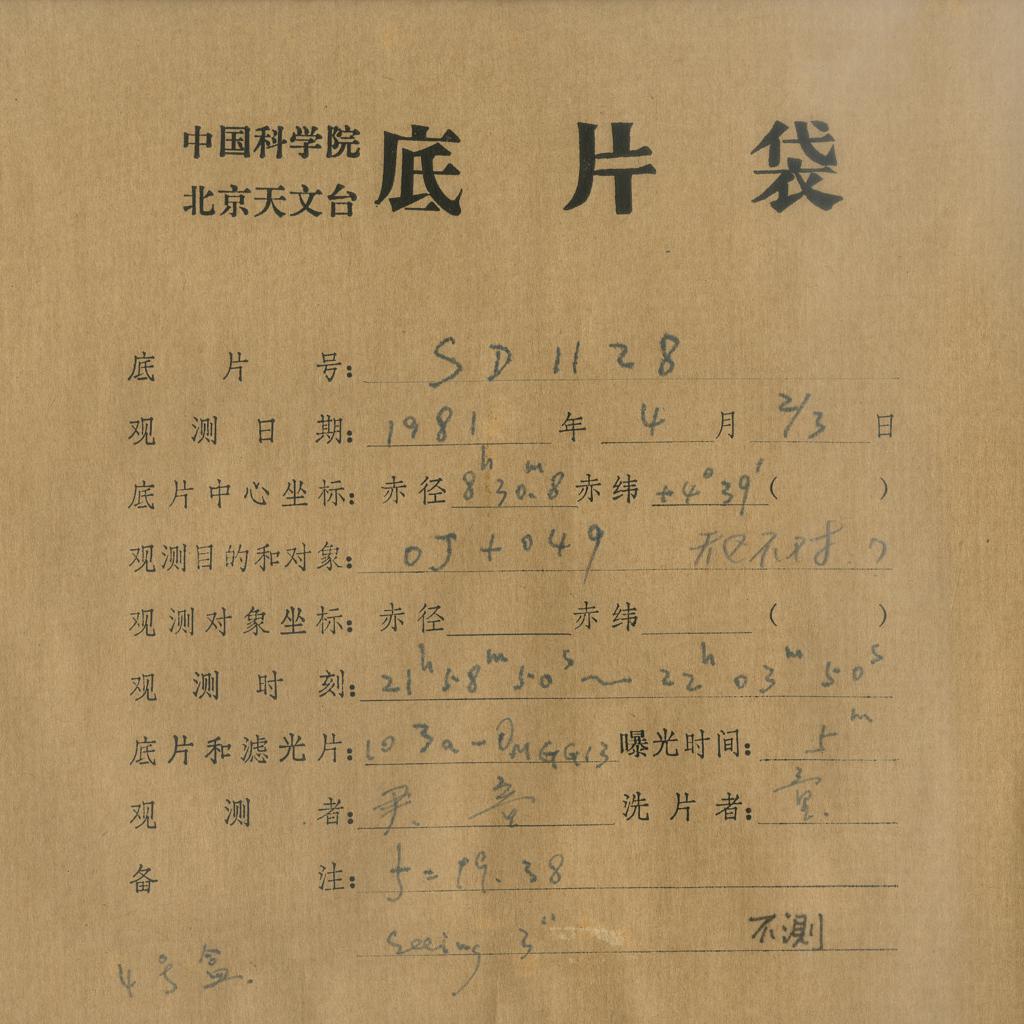 中国科学院
北京天文台
底片袋
底片号: SD1128
观测日期: 1981年4月2/3日
底片中心坐标: 赤径 8h30m.8 赤纬 +4°39′ ( )
观测目的和对象: OJ+049 不对?
观测对象坐标: 赤径 赤纬 ( )
观测时刻: 21h58m50s ~ 22h03m50s
底片和滤光片: 103a-O GG13 曝光时间: 5m
观测者: 洗片者: 童
备注: f=19.38
seeing 3″ 不测
4号盒.